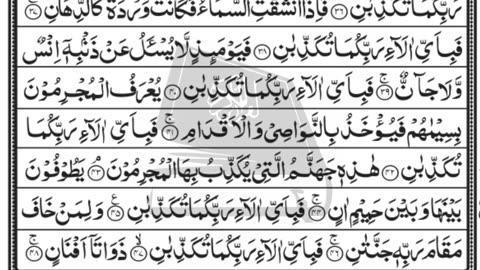 رَبِّكُمَا تُكَذِّبٰنِ ﴿۳۶﴾ فَاِذَا انْشَقَّتِ السَّمَآءُ فَكَانَتْ وَرْدَةً كَالدِّهَانِ ۚ﴿۳۷﴾
فَبِاَيِّ اٰلَآءِ رَبِّكُمَا تُكَذِّبٰنِ ﴿۳۸﴾ فَيَوْمَئِذٍ لَّا يُسْـَٔلُ عَنْ ذَنْۢبِهٖٓ اِنْسٌ
وَّلَا جَآنٌّ ۚ﴿۳۹﴾ فَبِاَيِّ اٰلَآءِ رَبِّكُمَا تُكَذِّبٰنِ ﴿۴۰﴾ يُعْرَفُ الْمُجْرِمُوْنَ
بِسِيْمٰهُمْ فَيُؤْخَذُ بِالنَّوَاصِيْ وَالْاَقْدَامِ ۚ﴿۴۱﴾ فَبِاَيِّ اٰلَآءِ رَبِّكُمَا
تُكَذِّبٰنِ ﴿۴۲﴾ هٰذِهٖ جَهَنَّمُ الَّتِيْ يُكَذِّبُ بِهَا الْمُجْرِمُوْنَ ۘ﴿۴۳﴾ يَطُوْفُوْنَ
بَيْنَهَا وَبَيْنَ حَمِيْمٍ اٰنٍ ۚ﴿۴۴﴾ فَبِاَيِّ اٰلَآءِ رَبِّكُمَا تُكَذِّبٰنِ ﴿۴۵﴾ۧ وَلِمَنْ خَافَ
مَقَامَ رَبِّهٖ جَنَّتٰنِ ۚ﴿۴۶﴾ فَبِاَيِّ اٰلَآءِ رَبِّكُمَا تُكَذِّبٰنِ ۙ﴿۴۷﴾ ذَوَاتَآ اَفْنَانٍ ۚ﴿۴۸﴾